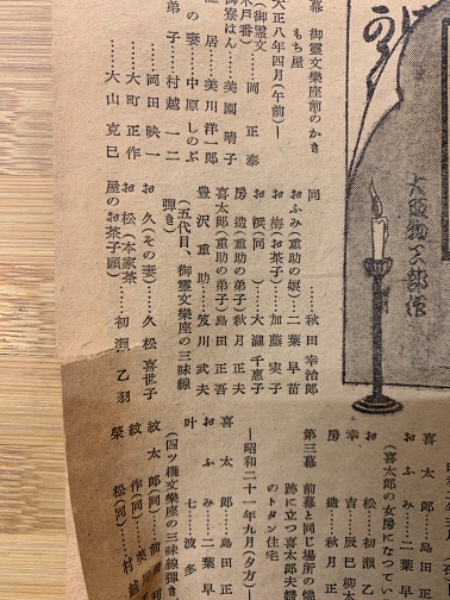 大阪
幕　御霊文樂座前のかき
もち屋
大正八年四月(午前)―
(御霊文
木戸番)……岡　正　泰
御寮はん……美園晴子
隠　居……美川洋一郎
の妻……中原しのぶ
弟子……村越一二
……岡田映一
……大町正作
……大山克巳
同　……秋田幸治郎
おふみ(重助の娘)…二葉早苗
お　梅(お茶子)……加藤実子
お　浜(同)……大瀧千恵子
房　造(重助の弟子)秋月正夫
喜太郎(重助の弟子)島田正吾
豊沢重助……笈川武夫
(五代目、御霊文樂座の三味線
弾き)
お　久(その妻)……久松喜世子
お　松(本家茶
屋のお茶子頭)……初瀬乙羽
喜太郎……島田正
おふみ……二葉早
(喜太郎の女房になつてい
お　松……初瀬乙
幸　吉……辰巳柳太
房　造……秋月正
第三幕　前幕と同じ場所の焼
跡に立つ喜太郎夫婦
のトタン住宅
―昭和二十一年九月(夕方)―
喜太郎……島田正
おふみ……二葉早
叶　……七波多
(四ツ橋文樂座の三味線弾き
紋太郎(同)
紋　作(同)…美
榮　松(同)…村越